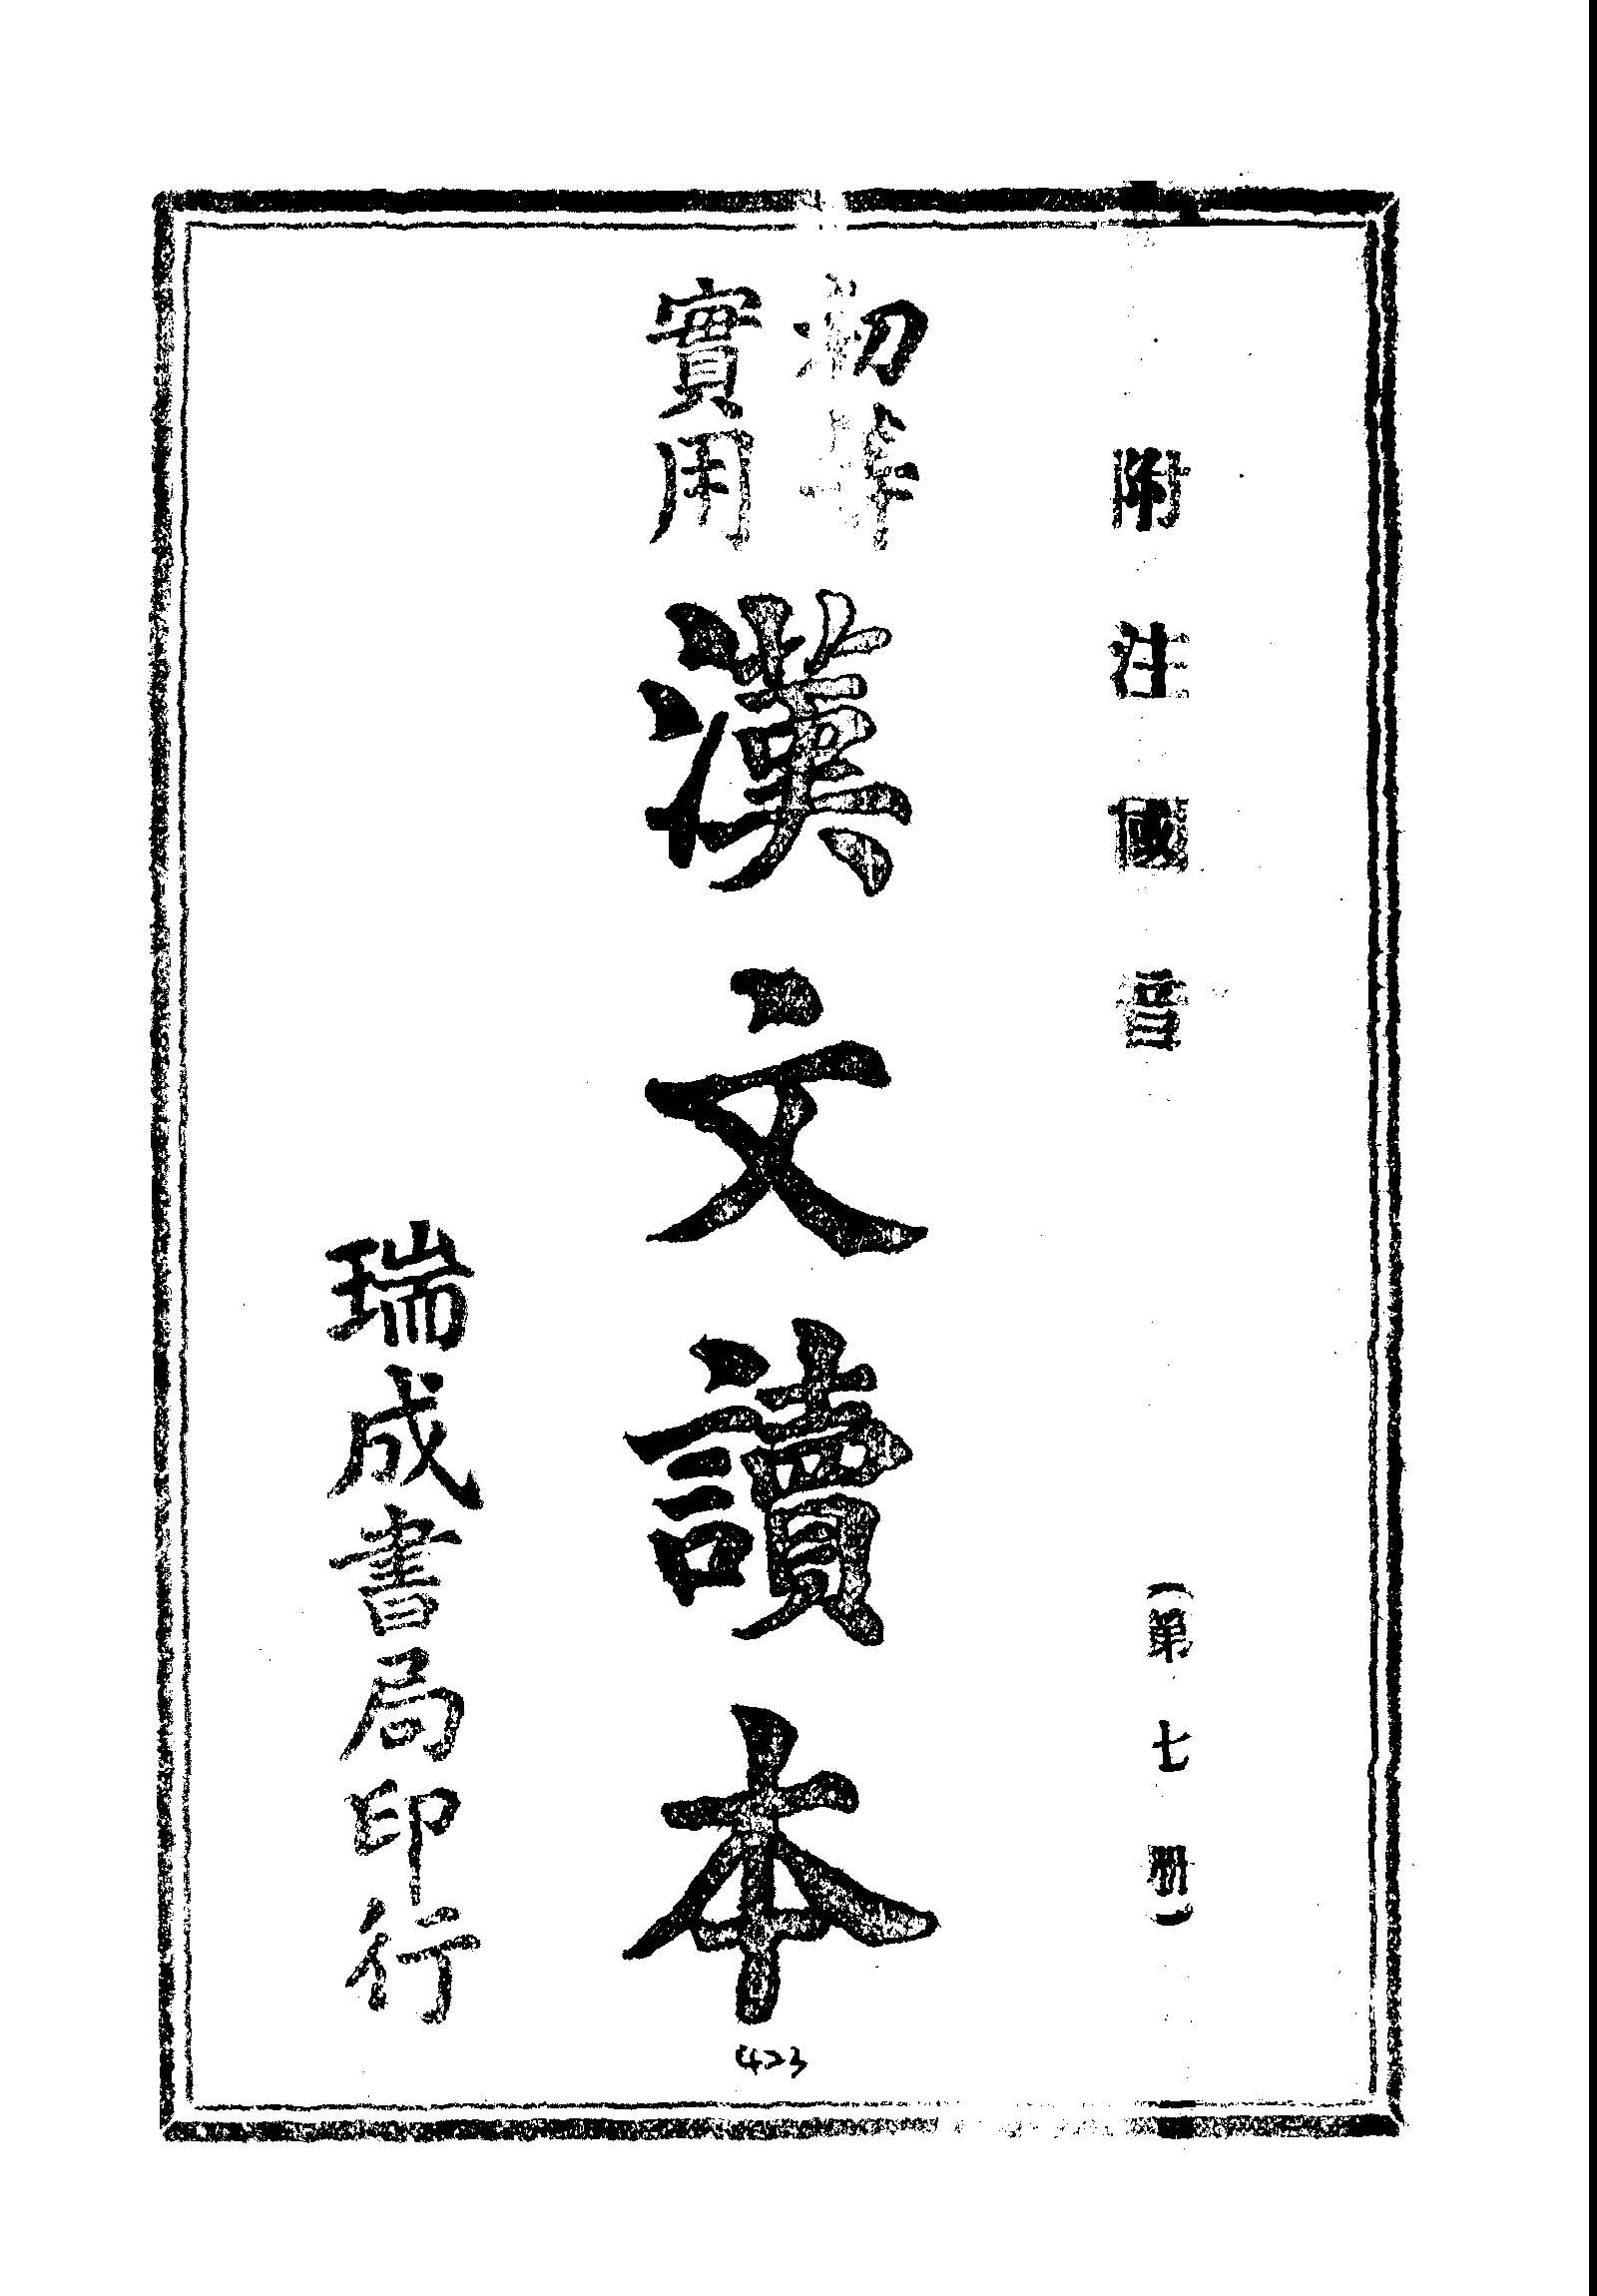 附注國音
(第七册)
初等
實用
漢文讀本
瑞成書局印行
423